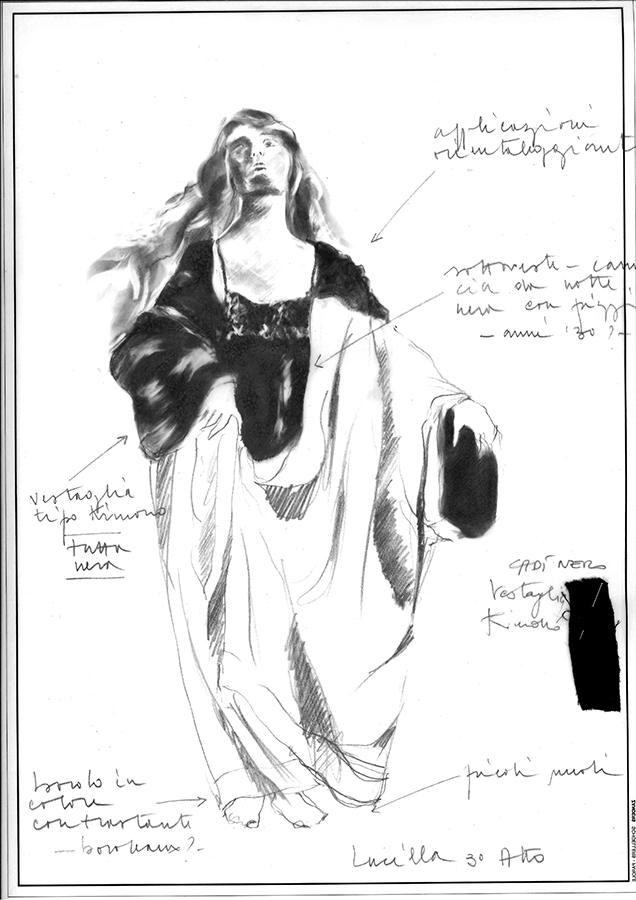 applicazioni
orientaleggianti
sottoveste - cami
cia da notte
nera con pizzi
- anni '30 ? -
vestaglia
tipo Kimono
tutta
nera
CADÌ NERO
Vestaglia
Kimono
bordo in
colore
contrastante
- bordeaux? -
piccoli
Lucilla 3º Atto